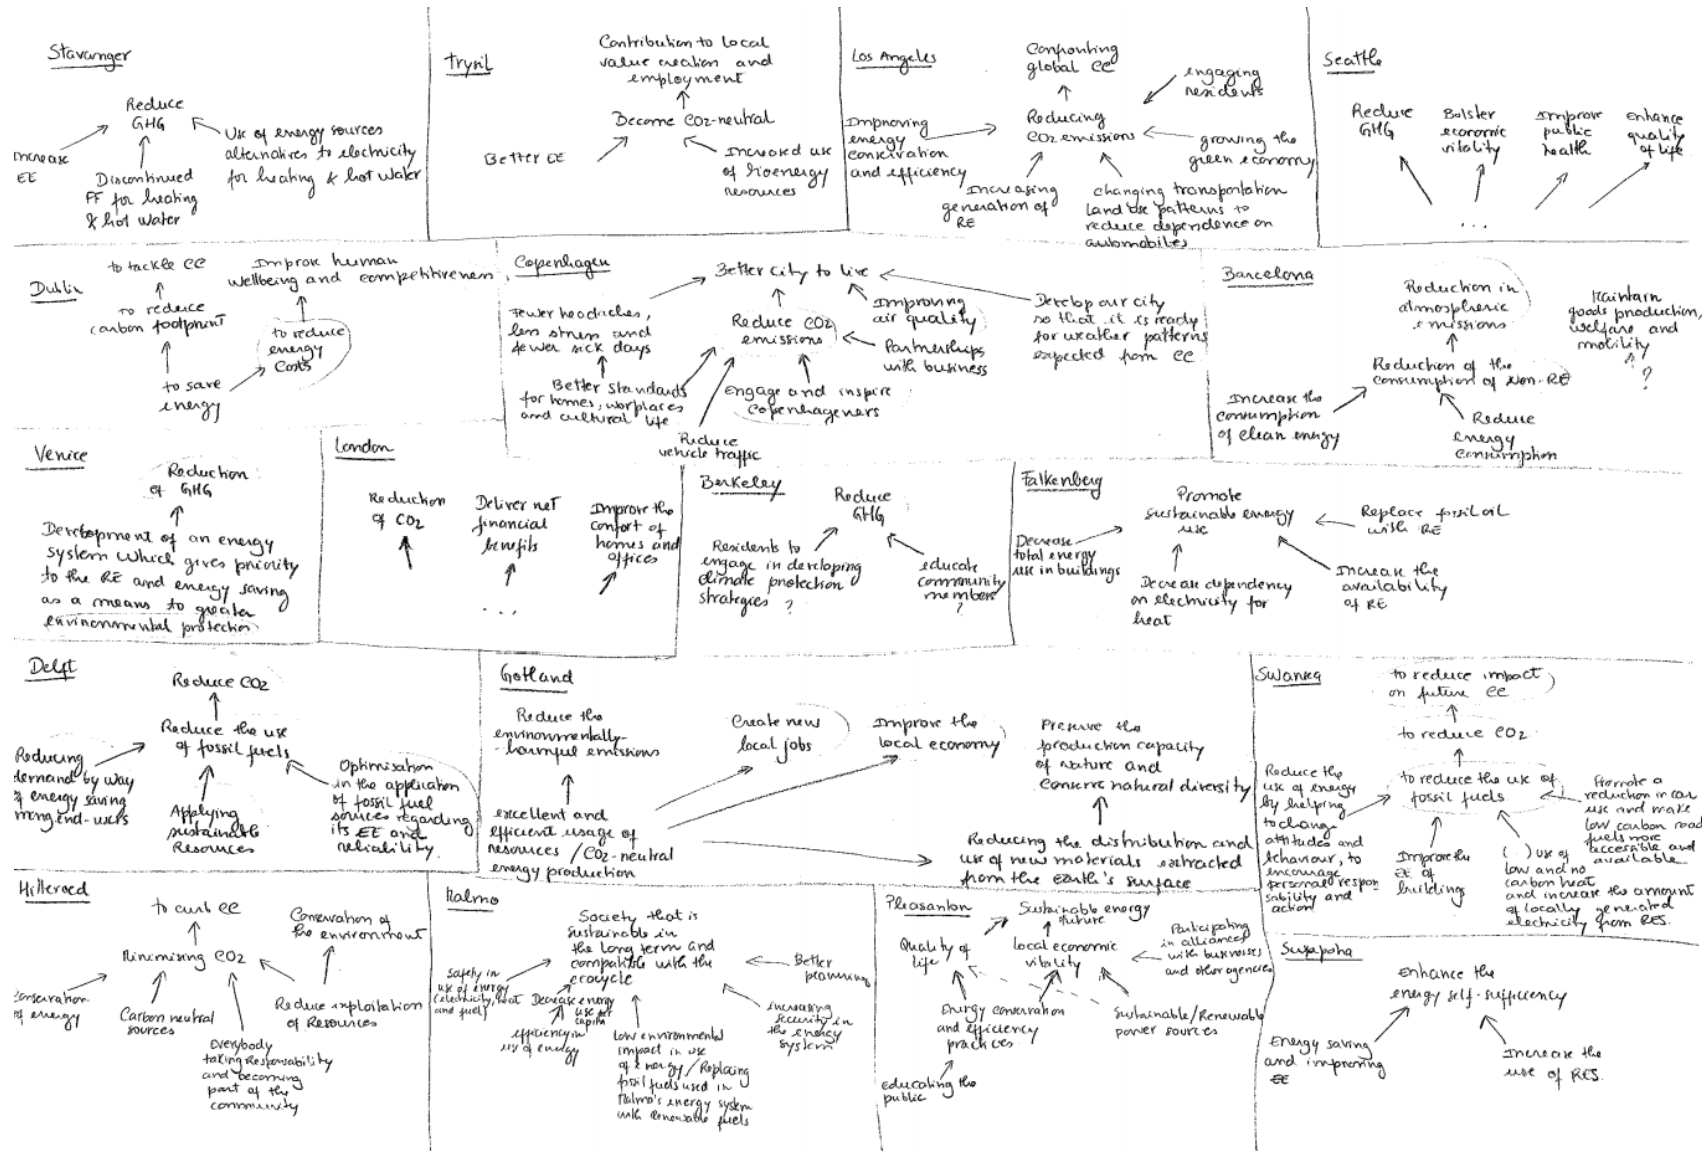 Stavanger
Reduce
GHG
Increase
EE
Discontinued
FF for heating
& hot water
Use of energy sources
alternatives to electricity
for heating & hot water
Trysil
Contribution to local
value creation and
employment
Become CO2-neutral
Better EE
Increased use
of bioenergy
resources
Los Angeles
Confronting
global CC
engaging
residents
Improving
energy
conservation
and efficiency
Reducing
CO2 emissions
growing the
green economy
Increasing
generation of
RE
changing transportation
land use patterns to
reduce dependence on
automobiles
Seattle
Reduce
GHG
Bolster
economic
vitality
Improve
public
health
Enhance
quality
of life
...
Dublin
to tackle CC
Improve human
wellbeing and competitiveness
to reduce
carbon footprint
to reduce
energy
costs
to save
energy
Copenhagen
Better city to live
Fewer headaches,
less stress and
fewer sick days
Reduce CO2
emissions
Improving
air quality
Develop our city
so that it is ready
for weather patterns
expected from CC
Partnerships
with business
Better standards
for homes, worplaces
and cultural life
Engage and inspire
Copenhageners
Reduce
vehicle traffic
Barcelona
Reduction in
atmospheric
emissions
Maintain
goods production,
welfare and
mobility
?
?
Reduction of the
consumption of Non-RE
Increase the
consumption
of clean energy
Reduce
energy
consumption
Venice
Reduction
of GHG
Development of an energy
system which gives priority
to the RE and energy saving
as a means to greater
environmental protection
London
Reduction
of CO2
Deliver net
financial
benefits
Improve the
confort of
homes and
offices
...
Berkeley
Reduce
GHG
Residents to
engage in developing
climate protection
strategies ?
educate
community
members
?
Falkenberg
Promote
sustainable energy
use
Replace fossil oil
with RE
Decrease
total energy
use in buildings
Decrease dependency
on electricity for
heat
Increase the
availability
of RE
Delft
Reduce CO2
Reduce the use
of fossil fuels
Reducing
demand by way
of energy saving
among end-users
Applying
sustainable
Resources
Optimisation
in the application
of fossil fuel
sources regarding
its EE and
reliability
Gotland
Reduce the
environmentally-
-harmful emissions
Create new
local jobs
Improve the
local economy
Preserve the
production capacity
of nature and
conserve natural diversity
excellent and
efficient usage of
resources / CO2-neutral
energy production
Reducing the distribution and
use of new materials extracted
from the Earth's surface
Swansea
to reduce impact
on future CC
to reduce CO2
to reduce the use of
fossil fuels
Reduce the
use of energy
by helping
to change
attitudes and
behaviour, to
encourage
personal respon
sability and
action
Improve the
EE of
building
(...) use of
low and no
carbon heat
and increase the amount
of locally generated
electricity from RES.
Promote a
reduction in car
use and make
low carbon road
fuels more
accessible and
available
Hilleroed
to curb CC
Conservation of
the environment
Minimising CO2
Conservation
of energy
Carbon neutral
sources
Reduce exploitation
of Resources
Everybody
taking Responsability
and becoming
part of the
community
Malmo
Society that is
sustainable in
the long term and
compatible with the
ecocycle
Better
planning
Safety in
use of energy
(electricity, heat
and fuel)
Decrease energy
use per
capita
efficiency in
use of energy
Low environmental
impact in use
of energy / Replacing
fossil fuels used in
Malmo's energy system
with renewable fuels
increasing
security in
the energy
system
Pleasanton
Sustainable energy
future
Quality of
life
Local economic
vitality
Participating
in alliances
with businesses
and other agencies
Energy conservation
and efficiency
practices
Sustainable/Renewable
power sources
educating the
public
Enhance the
energy self-sufficiency
Energy saving
and improving
EE
Increase the
use of RES.